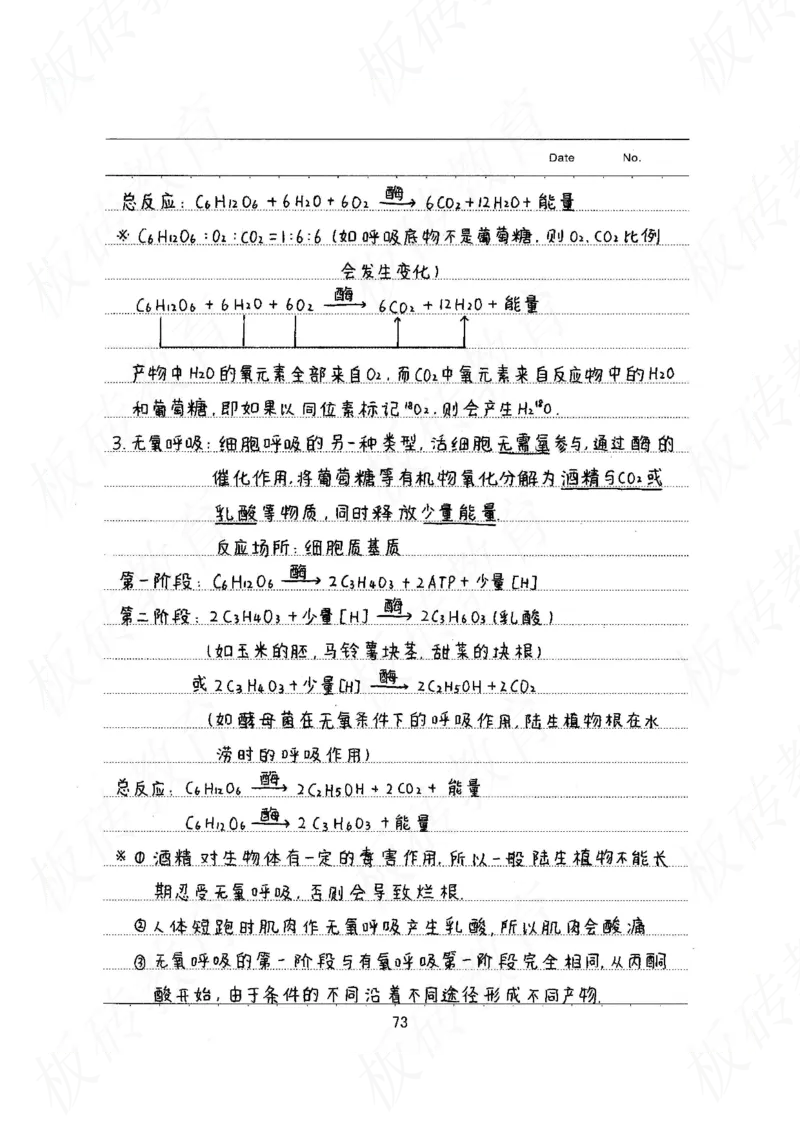 Date No.
总反应：C₆H₁₂O₆ + 6H₂O + 6O₂ —酶→ 6CO₂+12H₂O+ 能量
※ C₆H₁₂O₆：O₂：CO₂=1：6：6（如呼吸底物不是葡萄糖，则O₂、CO₂比例
会发生变化）
C₆H₁₂O₆ + 6H₂O + 6O₂ —酶→ 6CO₂ + 12H₂O + 能量
产物中H₂O的氧元素全部来自O₂，而CO₂中氧元素来自反应物中的H₂O
和葡萄糖，即如果以同位素标记¹⁸O₂，则会产生H₂¹⁸O.
3.无氧呼吸：细胞呼吸的另一种类型，活细胞无需氧参与，通过酶的
催化作用，将葡萄糖等有机物氧化分解为酒精与CO₂或
乳酸等物质，同时释放少量能量.
反应场所：细胞质基质
第一阶段：C₆H₁₂O₆ —酶→ 2C₃H₄O₃ + 2ATP + 少量[H]
第二阶段：2C₃H₄O₃ +少量[H] —酶→ 2C₃H₆O₃（乳酸）
（如玉米的胚，马铃薯块茎，甜菜的块根）
或 2C₃H₄O₃+少量[H] —酶→ 2C₂H₅OH +2CO₂
（如酵母菌在无氧条件下的呼吸作用，陆生植物根在水
涝时的呼吸作用）
总反应：C₆H₁₂O₆ —酶→ 2C₂H₅OH + 2CO₂ + 能量
C₆H₁₂O₆ —酶→ 2C₃H₆O₃ +能量
※ ① 酒精对生物体有一定的毒害作用，所以一般陆生植物不能长
期忍受无氧呼吸，否则会导致烂根.
②人体短跑时肌肉作无氧呼吸产生乳酸，所以肌肉会酸痛
③无氧呼吸的第一阶段与有氧呼吸第一阶段完全相同，从丙酮
酸开始，由于条件的不同沿着不同途径形成不同产物.
73
板砖教育